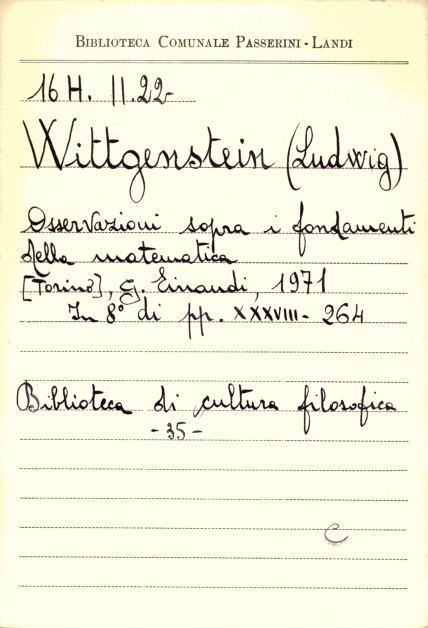 BIBLIOTECA COMUNALE PASSERINI-LANDI
16 H. II.22-
Wittgenstein (Ludwig)
Osservazioni sopra i fondamenti
della matematica
[Torino], G. Einaudi, 1971
In 8° di pp. XXXVIII-264
Biblioteca di cultura filosofica
-35-
C